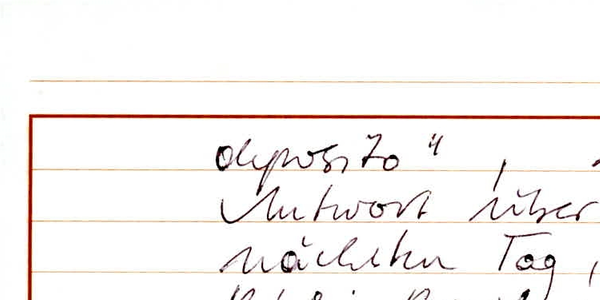 deposito",
Antwort über
nächsten Tag,